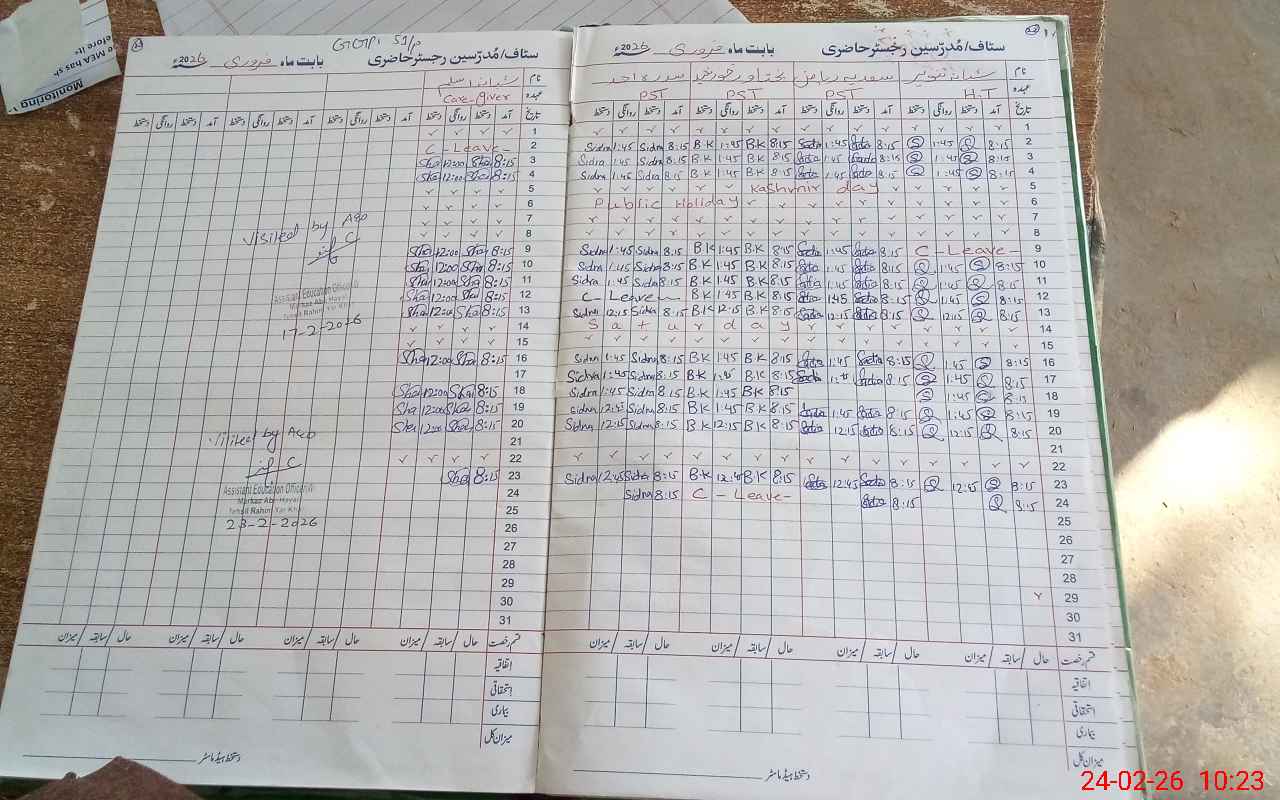 GGPS 51/P
ستاف/مُدرّسین رجسٹر حاضری بابت ماہ فروری 2026ء
نام
عہدہ Care-Giver
تاریخ آمد دستخط روانگی دستخط آمد دستخط روانگی دستخط آمد دستخط روانگی دستخط آمد دستخط روانگی دستخط
1
2 C-Leave-
3 8:15 Sha 12:00 Sha
4 8:15 Sha 12:00 Sha
5
6
7
8
9 8:15 Sha 12:00 Sha
10 8:15 Sha 12:00 Sha
11 8:15 Sha 12:00 Sha
12 8:15 Sha 12:00 Sha
13 8:15 Sha 12:00 Sha
14
15
16 8:15 Sha 12:00 Sha
17
18 8:15 Sha 12:00 Sha
19 8:15 Sha 12:00 Sha
20 8:15 Sha 12:00 Sha
21
22
23 8:15 Sha
24
25
26
27
28
29
30
31
Visited by AEO
Assistant Education Officer
Markaz
Tehsil Rahim Yar Khan
17-2-2026
Visited by AEO
Assistant Education Officer
Markaz
Tehsil Rahim Yar Khan
23-2-2026
قسم رخصت حال / سابقہ / میزان حال / سابقہ / میزان حال / سابقہ / میزان حال / سابقہ / میزان
اتفاقیہ
استحقاقی
بیماری
میزان کل
دستخط ہیڈ ماسٹر
ستاف/مُدرّسین رجسٹر حاضری بابت ماہ فروری 2026ء
نام
عہدہ H.T PST PST PST
تاریخ آمد دستخط روانگی دستخط آمد دستخط روانگی دستخط آمد دستخط روانگی دستخط آمد دستخط روانگی دستخط
1
2 8:15 1:45 8:15 Sadia 1:45 Sadia 8:15 B.K 1:45 B.K 8:15 Sidra 1:45 Sidra
3 8:15 1:45 8:15 Sadia 1:45 Sadia 8:15 B.K 1:45 B.K 8:15 Sidra 1:45 Sidra
4 8:15 1:45 8:15 Sadia 1:45 Sadia 8:15 B.K 1:45 B.K 8:15 Sidra 1:45 Sidra
5 Kashmir day
6 Public Holiday
7
8
9 C-Leave- 8:15 Sadia 1:45 Sadia 8:15 B.K 1:45 B.K 8:15 Sidra 1:45 Sidra
10 8:15 1:45 8:15 Sadia 1:45 Sadia 8:15 B.K 1:45 B.K 8:15 Sidra 1:45 Sidra
11 8:15 1:45 8:15 Sadia 1:45 Sadia 8:15 B.K 1:45 B.K 8:15 Sidra 1:45 Sidra
12 8:15 1:45 8:15 Sadia 1:45 Sadia 8:15 B.K 1:45 B.K C-Leave-
13 8:15 12:15 8:15 Sadia 12:15 Sadia 8:15 B.K 12:15 B.K 8:15 Sidra 12:15 Sidra
14 Saturday
15
16 8:15 1:45 8:15 Sadia 1:45 Sadia 8:15 B.K 1:45 B.K 8:15 Sidra 1:45 Sidra
17 8:15 1:45 8:15 Sadia Sadia 8:15 B.K B.K 8:15 Sidra 1:45 Sidra
18 8:15 1:45 8:15 B.K 1:45 B.K 8:15 Sidra 1:45 Sidra
19 8:15 1:45 8:15 Sadia 1:45 Sadia 8:15 B.K 1:45 B.K 8:15 Sidra 12:45 Sidra
20 8:15 12:15 8:15 Sadia 12:15 Sadia 8:15 B.K 12:15 B.K 8:15 Sidra 12:15 Sidra
21
22
23 8:15 12:45 8:15 Sadia 12:45 Sadia 8:15 B.K 12:45 B.K 8:15 Sidra 12:45 Sidra
24 8:15 8:15 Sadia C-Leave- 8:15 Sidra
25
26
27
28
29
30
31
قسم رخصت حال / سابقہ / میزان حال / سابقہ / میزان حال / سابقہ / میزان حال / سابقہ / میزان
اتفاقیہ
استحقاقی
بیماری
میزان کل
دستخط ہیڈ ماسٹر
Monitoring
24-02-26 10:23